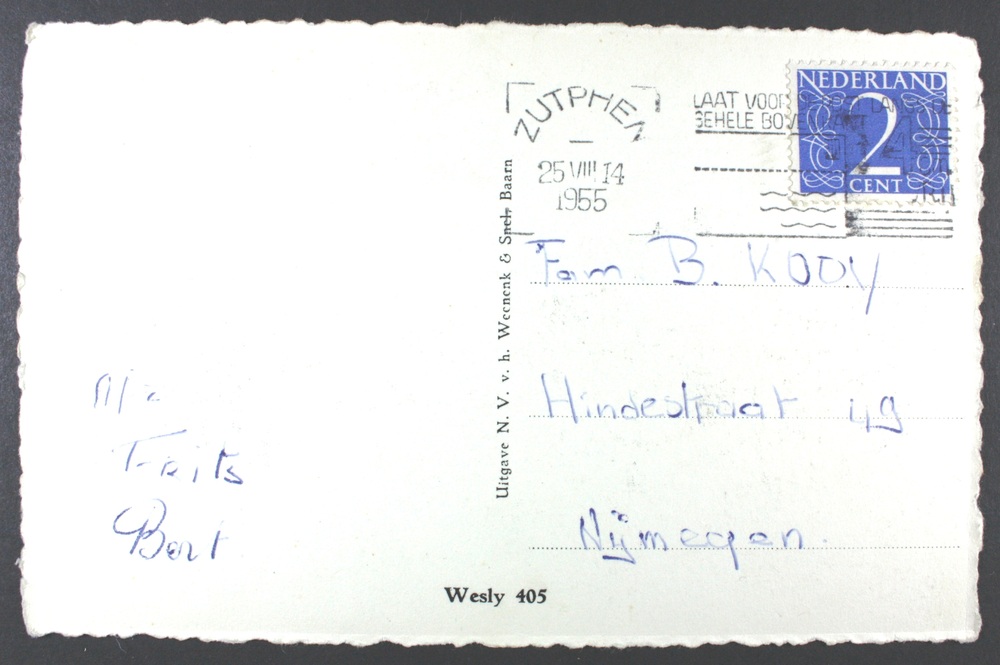 NEDERLAND
2
CENT
ZUTPHEN
25 VIII 14
1955
LAAT VOOR
GEHELE
Uitgave N. V. v. h. Weenenk & Snel, Baarn
Fam B. KOOY
Hindestraat 49
Nijmegen.
Frits
Bert
Wesly 405